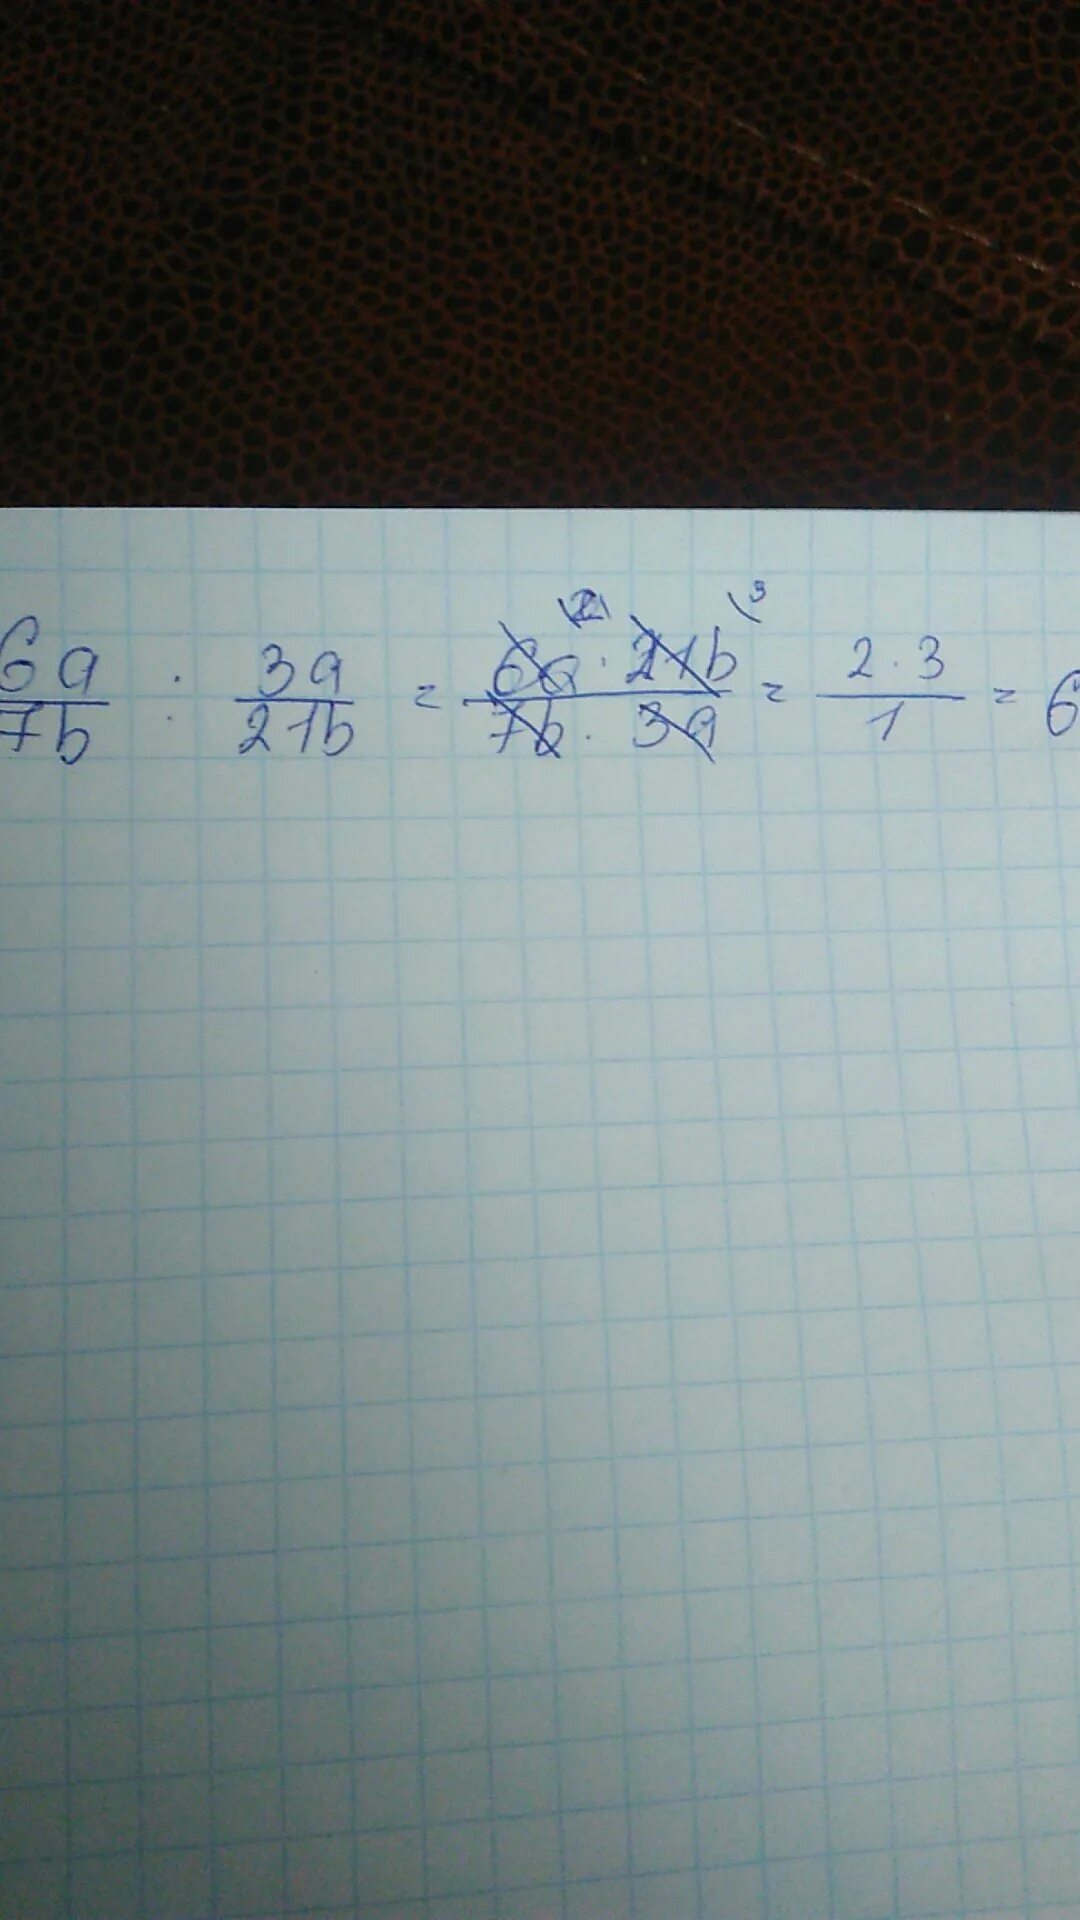 6a/7b : 3a/21b = 6a · 21b / 7b · 3a = 2 · 3 / 1 = 6